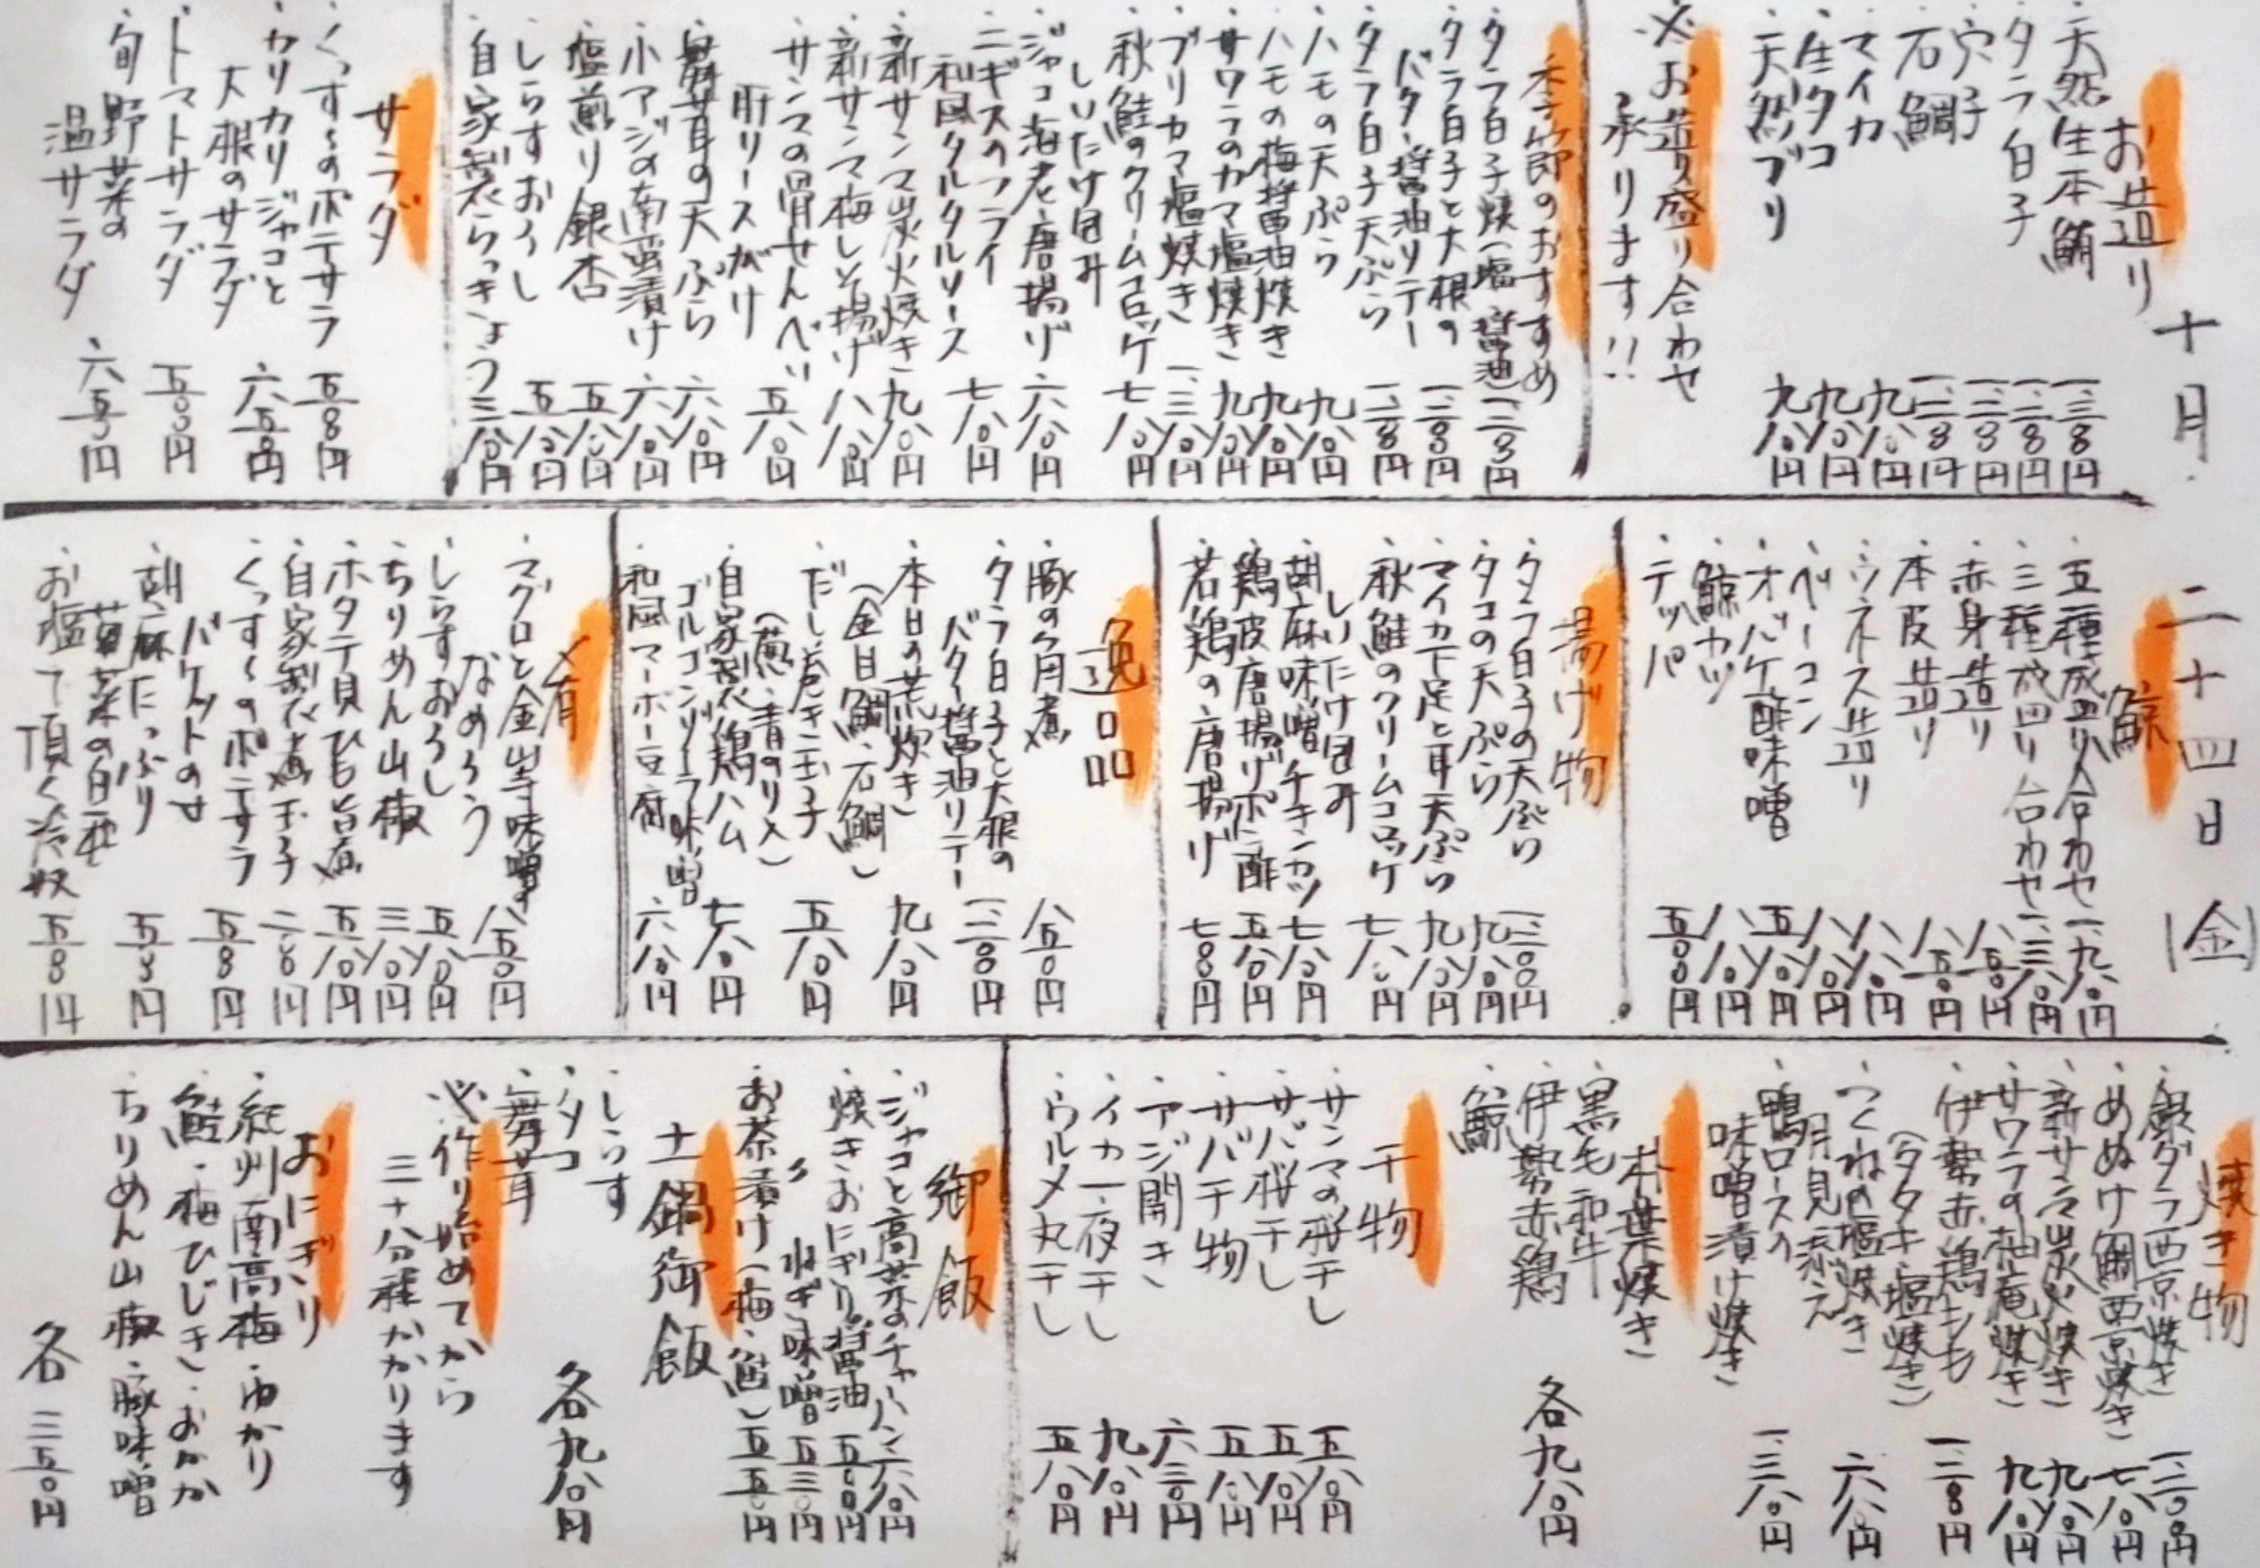 十月二十四日(金)
お造り
・天然生本鮪 一、三八〇円
・タラ白子 一、二八〇円
・穴子 一、二八〇円
・石鯛 一、二八〇円
・マイカ 九八〇円
・生タコ 九八〇円
・天然ブリ 九八〇円
※お造り盛り合わせ
承ります!!
季節のおすすめ
・タラ白子焼(塩・醤油) 一、二八〇円
・タラ白子と大根の
バター醤油ソテー 一、三〇〇円
・タラ白子天ぷら 一、三〇〇円
・ハモの天ぷら 九八〇円
・ハモの梅醤油焼き 九八〇円
・サワラのカマ塩焼き 九八〇円
・ブリカマ塩焼き 一、三八〇円
・秋鮭のクリームコロッケ 七八〇円
しいたけ包み
・ジャコ海老唐揚げ 六八〇円
・ニギスのフライ
和風タルタルソース 七八〇円
・新サンマ炭火焼き 九八〇円
・新サンマ梅しそ揚げ 八八〇円
・サンマの骨せんべい
肝リースがけ 五八〇円
・舞茸の天ぷら 六八〇円
・小アジの南蛮漬け 六八〇円
・塩煎り銀杏 五八〇円
・しらすおろし 五八〇円
・自家製らっきょう 三八〇円
サラダ
・くっす〜のポテサラ 五八〇円
・カリカリジャコと
大根のサラダ 六五〇円
・トマトサラダ 五八〇円
・旬野菜の
温サラダ 六五〇円
鯨
・五種盛り合わせ 一、九八〇円
・三種盛り合わせ 一、三八〇円
・赤身造り 八五〇円
・本皮造り 八五〇円
・ウネス造り 八八〇円
・ベーコン 八八〇円
・オバケ酢味噌 五八〇円
・鯨カツ 八八〇円
・テッパ 五〇〇円
揚げ物
・タラ白子の天ぷら 一、三〇〇円
・タコの天ぷら 九八〇円
・マイカ下足と耳天ぷら 九八〇円
・秋鮭のクリームコロッケ
しいたけ包み 七八〇円
・胡麻味噌チキンカツ 七八〇円
・鶏皮唐揚げポン酢 五八〇円
・若鶏の唐揚げ 七八〇円
逸品
・豚の角煮 八五〇円
・タラ白子と大根の
バター醤油ソテー 一、三〇〇円
・本日の荒炊き
(金目鯛・石鯛) 九八〇円
・だし巻き玉子
(葱・青のり入) 五八〇円
・自家製鶏ハム
ゴルゴンゾーラ味噌 七八〇円
・和風マーボー豆腐 六八〇円
・マグロと金山寺味噌の
なめろう 八五〇円
・しらすおろし 五八〇円
・ちりめん山椒 三八〇円
・ホタテ貝ひも旨煮 五八〇円
・自家製煮玉子 二八〇円
・くっす〜のポテサラ
バケットのせ 五八〇円
・胡麻たっぷり
菊菜の白和 五八〇円
・お塩で頂く冷奴 五八〇円
焼き物
・銀ダラ西京焼き 一、二八〇円
・めぬけ鯛西京焼き 七八〇円
・新サンマ炭火焼き 九八〇円
・サワラの柚庵焼き 九八〇円
・伊勢赤鶏もも
(タタキ・塩焼き) 一、二八〇円
・つくねの塩焼き
月見添え 六八〇円
・鴨ロースの
味噌漬け焼き 一、三八〇円
朴葉焼き
・黒毛和牛
・伊勢赤鶏
・鯨
各九八〇円
干物
・サンマの桜干し 五八〇円
・サバ桜干し 五八〇円
・サバ干物 五八〇円
・アジ開き 六三〇円
・イカ一夜干し 九八〇円
・ウルメ丸干し 五八〇円
御飯
・ジャコと高菜のチャーハン 六八〇円
・焼きおにぎり醤油 五〇〇円
〃 ねぎ味噌 五三〇円
・お茶漬け(梅・鮭) 五五〇円
土鍋御飯
・しらす
・タコ
・舞茸
各九八〇円
※作り始めてから
三十分程かかります
おにぎり
・紀州南高梅・ゆかり
・鮭・梅ひじき・おかか
・ちりめん山椒・豚味噌
各三五〇円